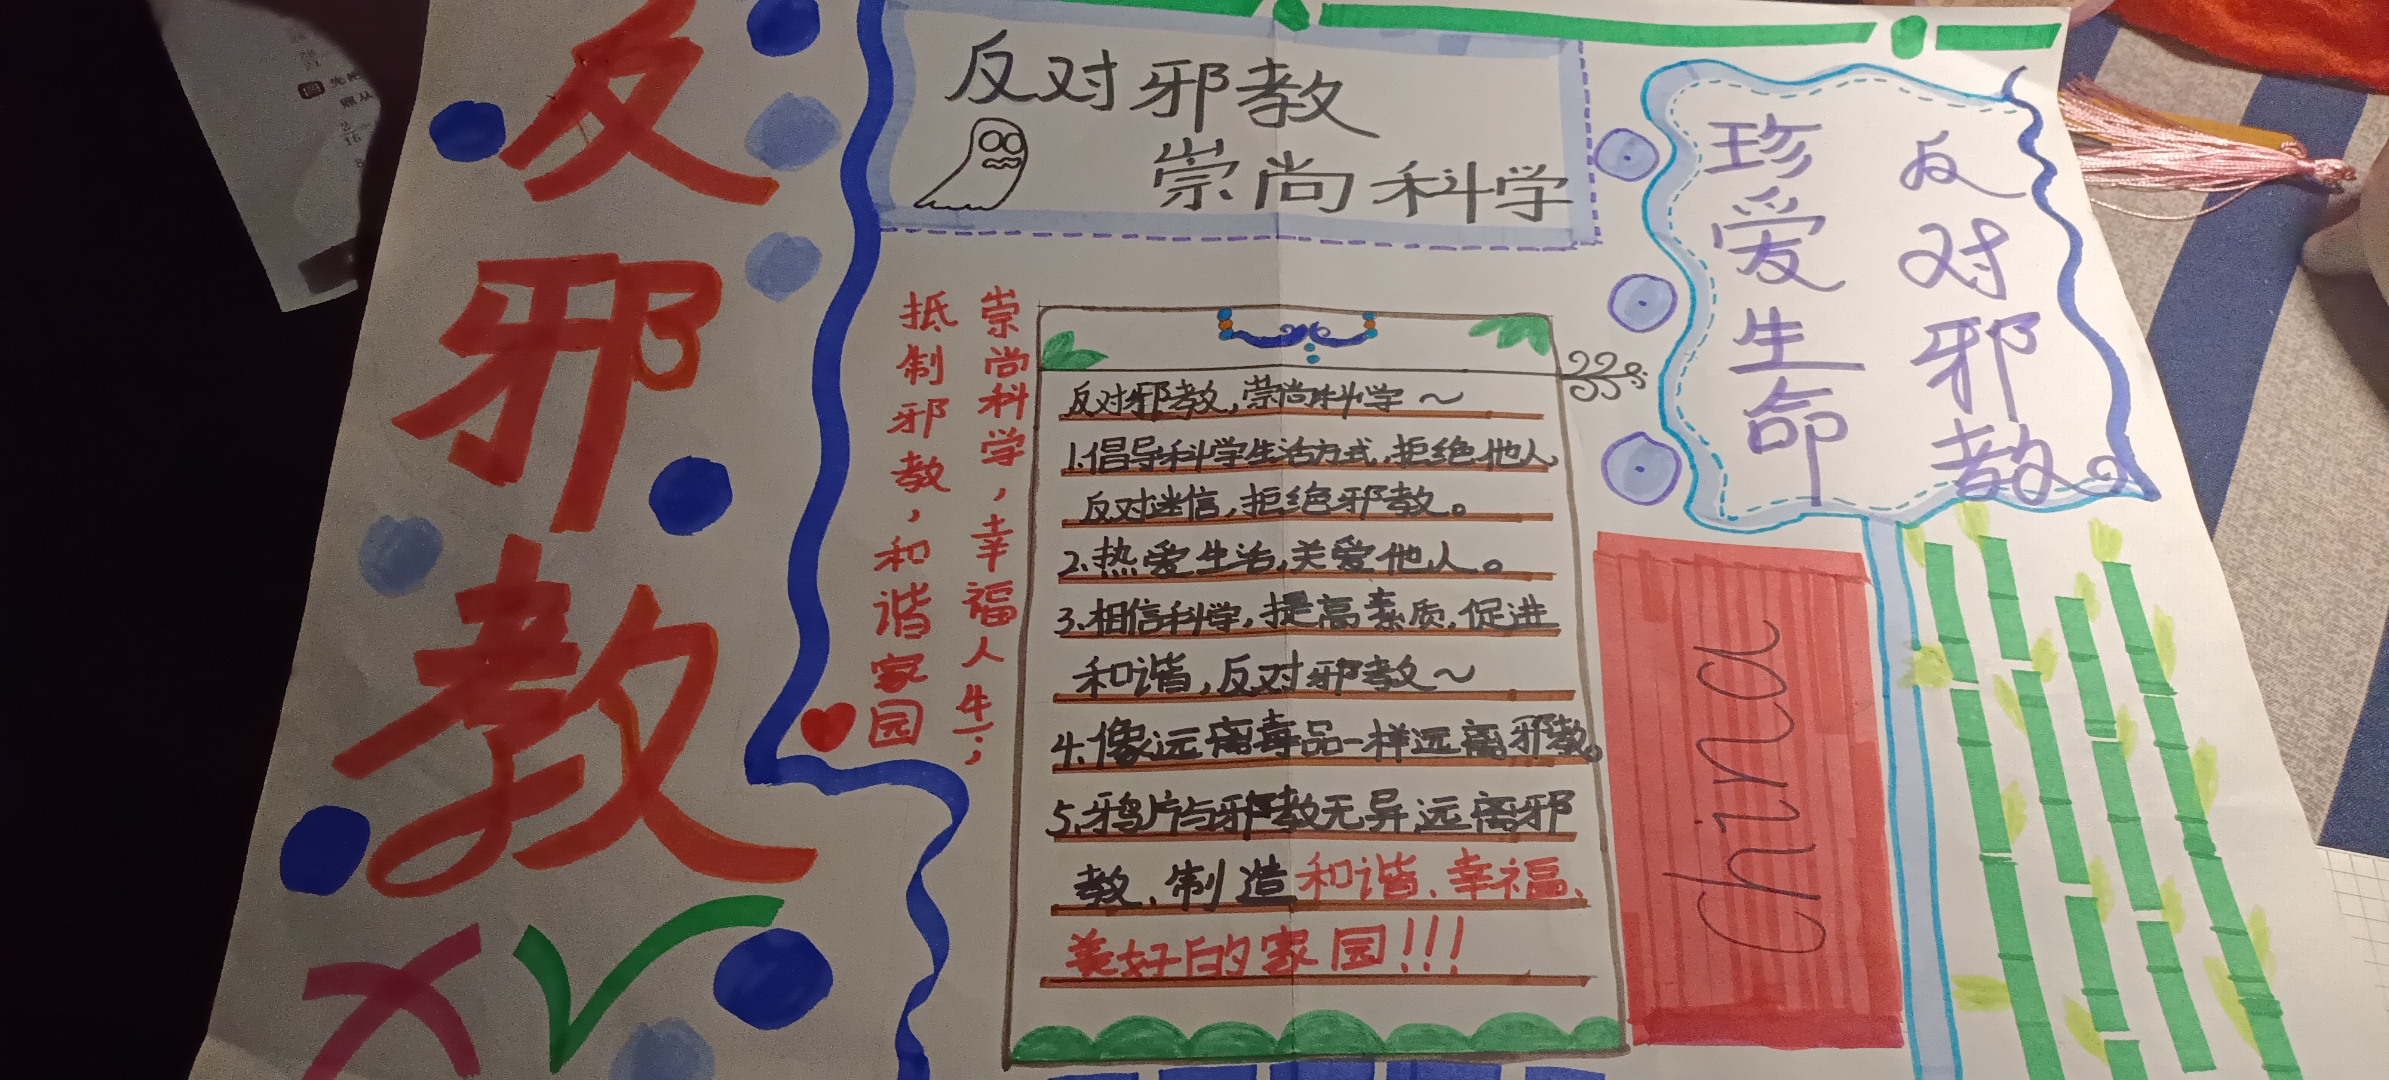 反邪教
反对邪教
崇尚科学
崇尚科学，幸福人生；
抵制邪教，和谐家园
反对邪教，崇尚科学～
1.倡导科学生活方式，拒绝他人，
反对迷信，拒绝邪教。
2.热爱生活，关爱他人。
3.相信科学，提高素质，促进
和谐，反对邪教～
4.像远离毒品一样远离邪教。
5.鸦片与邪教无异远离邪
教、制造和谐、幸福、
美好的家园!!!
反对邪教
珍爱生命
China